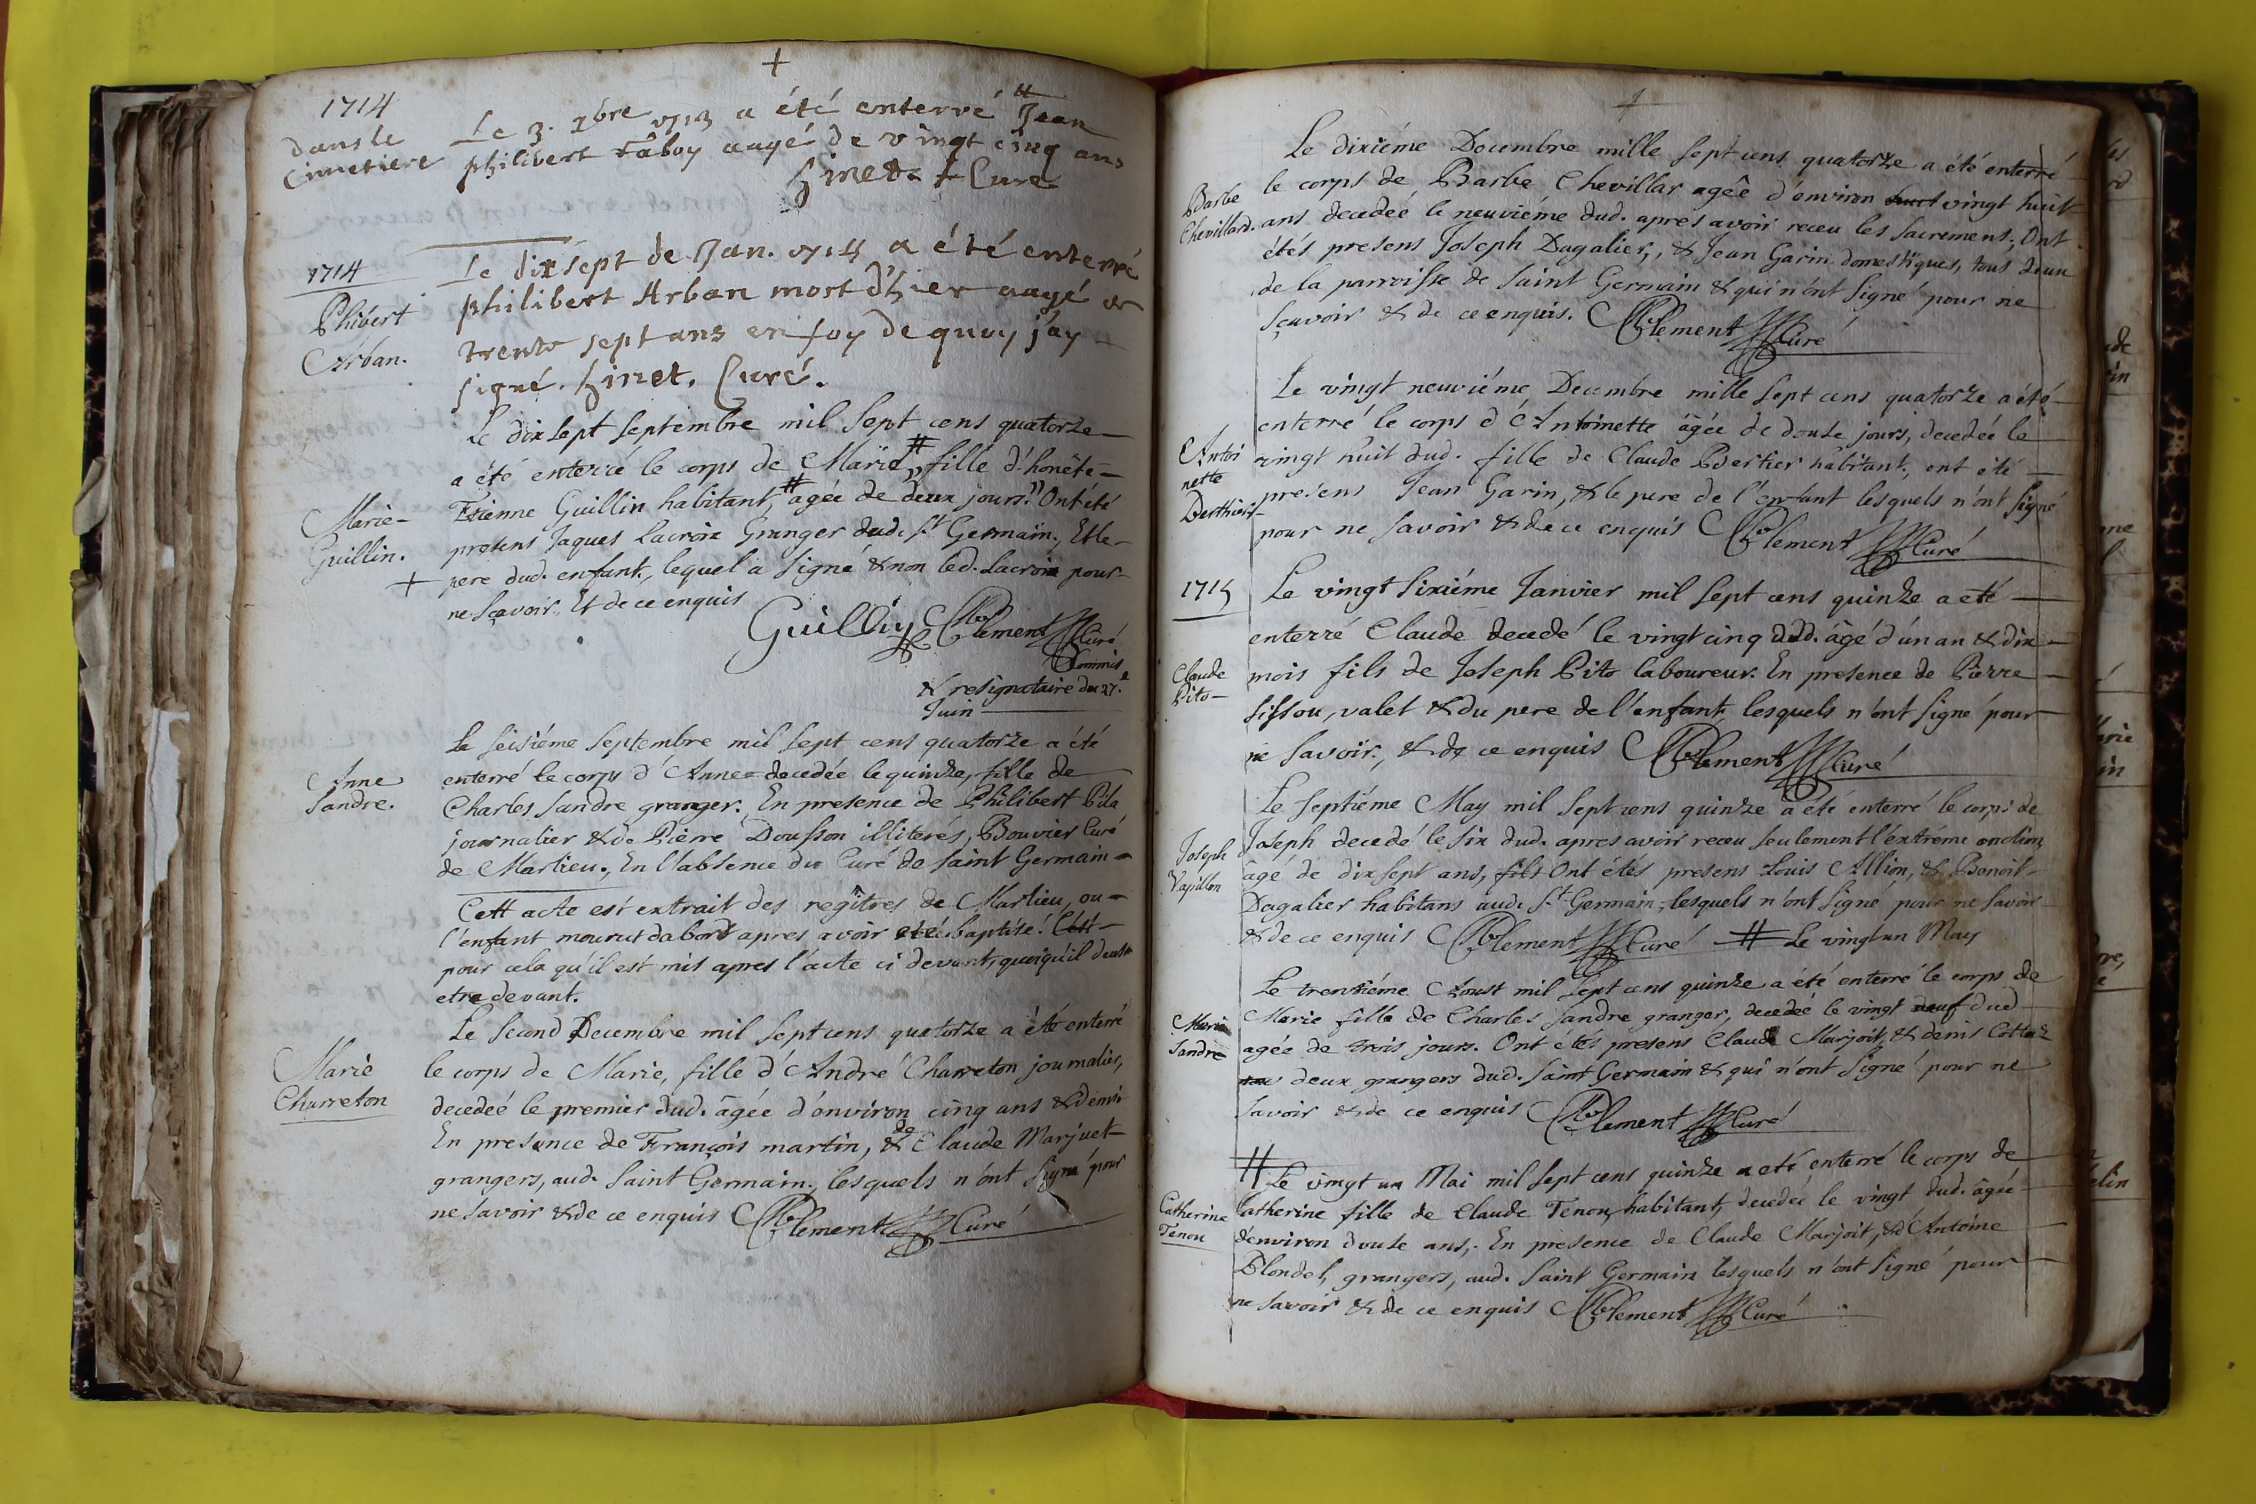 1714
dans le
Cimetiere
Le 3. 9bre 1713 a été enterré Jean
philibert aagé de vingt cinq ans
Curé
1714
Phibert
Arban.
Le dixsept de Jan. 1714 a été enterré
philibert Arban mort d'hier aagé de
trente sept ans en foy de quoy j'ay
signé. Curé.
Marie
Guillin.
Le dix sept septembre mil sept cens quatorze
a été enterré le corps de Marie, fille d'honéte
Etienne Guillin habitant, agée de deux jours. Ont été
presens Jaques Lacroix Granger dud. St Germain, Et le
pere dud. enfant, lequel a signé & non led. Lacroix pour
ne sçavoir. Et de ce enquis
Guillin Clement Curé
Commis
& resignataire du 27.e
Juin
Anne
Sandre.
Le seisiéme septembre mil sept cens quatorze a été
enterré le corps d'Anne decedée le quinze, fille de
Charles Sandre granger. En presence de Philibert Pila
journalier & de Pierre Dousson illiterés, Bouvier Curé
de Marlieu. En l'absence du Curé de saint Germain
Cett acte est extrait des regîtres de Marlieu, ou
l'enfant mourut dabord apres avoir eté baptisé. C'est
pour cela qu'il est mis apres l'acte ci devant, quoiqu'il deust
etre devant.
Marie
Charreton
Le second Decembre mil sept cens quatorze a été enterré
le corps de Marie, fille d'André Charreton journalier,
decedeé le premier dud. âgée d'environ cinq ans & demi
En presence de François martin, & de Claude Marjuet
grangers, aud. saint Germain, lesquels n'ont signé pour
ne savoir & de ce enquis Clement Curé
Barbe
Chevillard.
Le dixiéme Decembre mille sept cens quatorze a été enterré
le corps de Barbe Chevillar ageê d'environ vingt huit
ans decedeé le neuviéme dud. apres avoir receu les sacremens. Ont
étés presens Joseph Dagalier, & Jean Garin domestiques, tous deux
de la parroisse de saint Germain & qui n'ont signé pour ne
sçavoir & de ce enquis. Clement Curé
Antoi
nette
Berthier
Le vingt neuviéme Decembre mille sept cens quatorze a été
enterré le corps d'Antoinette âgée de douse jours, decedeé le
vingt huit dud. fille de Claude Bertier habitant, ont été
presens Jean Garin, & le pere de l'enfant lesquels n'ont signé
pour ne savoir & de ce enquis Clement Curé
1715
Claude
Pito
Le vingt sixiéme Janvier mil sept cens quinze a eté
enterré Claude decedé le vingt cinq dud. âgé d'un an & dix
mois fils de Joseph Pito laboureur. En presence de Pierre
sissou, valet & du pere de l'enfant lesquels n'ont signé pour
ne savoir, & de ce enquis Clement Curé
Joseph
Vapillon
Le septiéme May mil sept cens quinze a été enterré le corps de
Joseph decedé le six dud. apres avoir receu seulement l'extréme onction,
âgé de dix sept ans, fils Ont étés presens Louis Allion, & Benoit
Dagalier habitans aud. St Germain, lesquels n'ont signé pour ne savoir
& de ce enquis Clement Curé # Le vingt un May
Marie
Sandre
Le trentiéme Aoust mil sept cens quinze a été enterré le corps de
Marie fille de Charles Sandre granger, decedeé le vingt neuf dud
agée de trois jours. Ont étés presens Claude Marjoit, & denis Cottaz
tous deux grangers dud. saint Germain & qui n'ont signé pour ne
savoir & de ce enquis Clement Curé
Catherine
Tenou
# Le vingt un Mai mil sept cens quinze a eté enterré le corps de
Catherine fille de Claude Tenou, habitant, decedeé le vingt dud. âgée
d'environ douse ans,. En presence de Claude Marjoit, & d'Antoine
Blondel, grangers, aud. saint Germain lesquels n'ont signé pour
ne savoir & de ce enquis Clement Curé